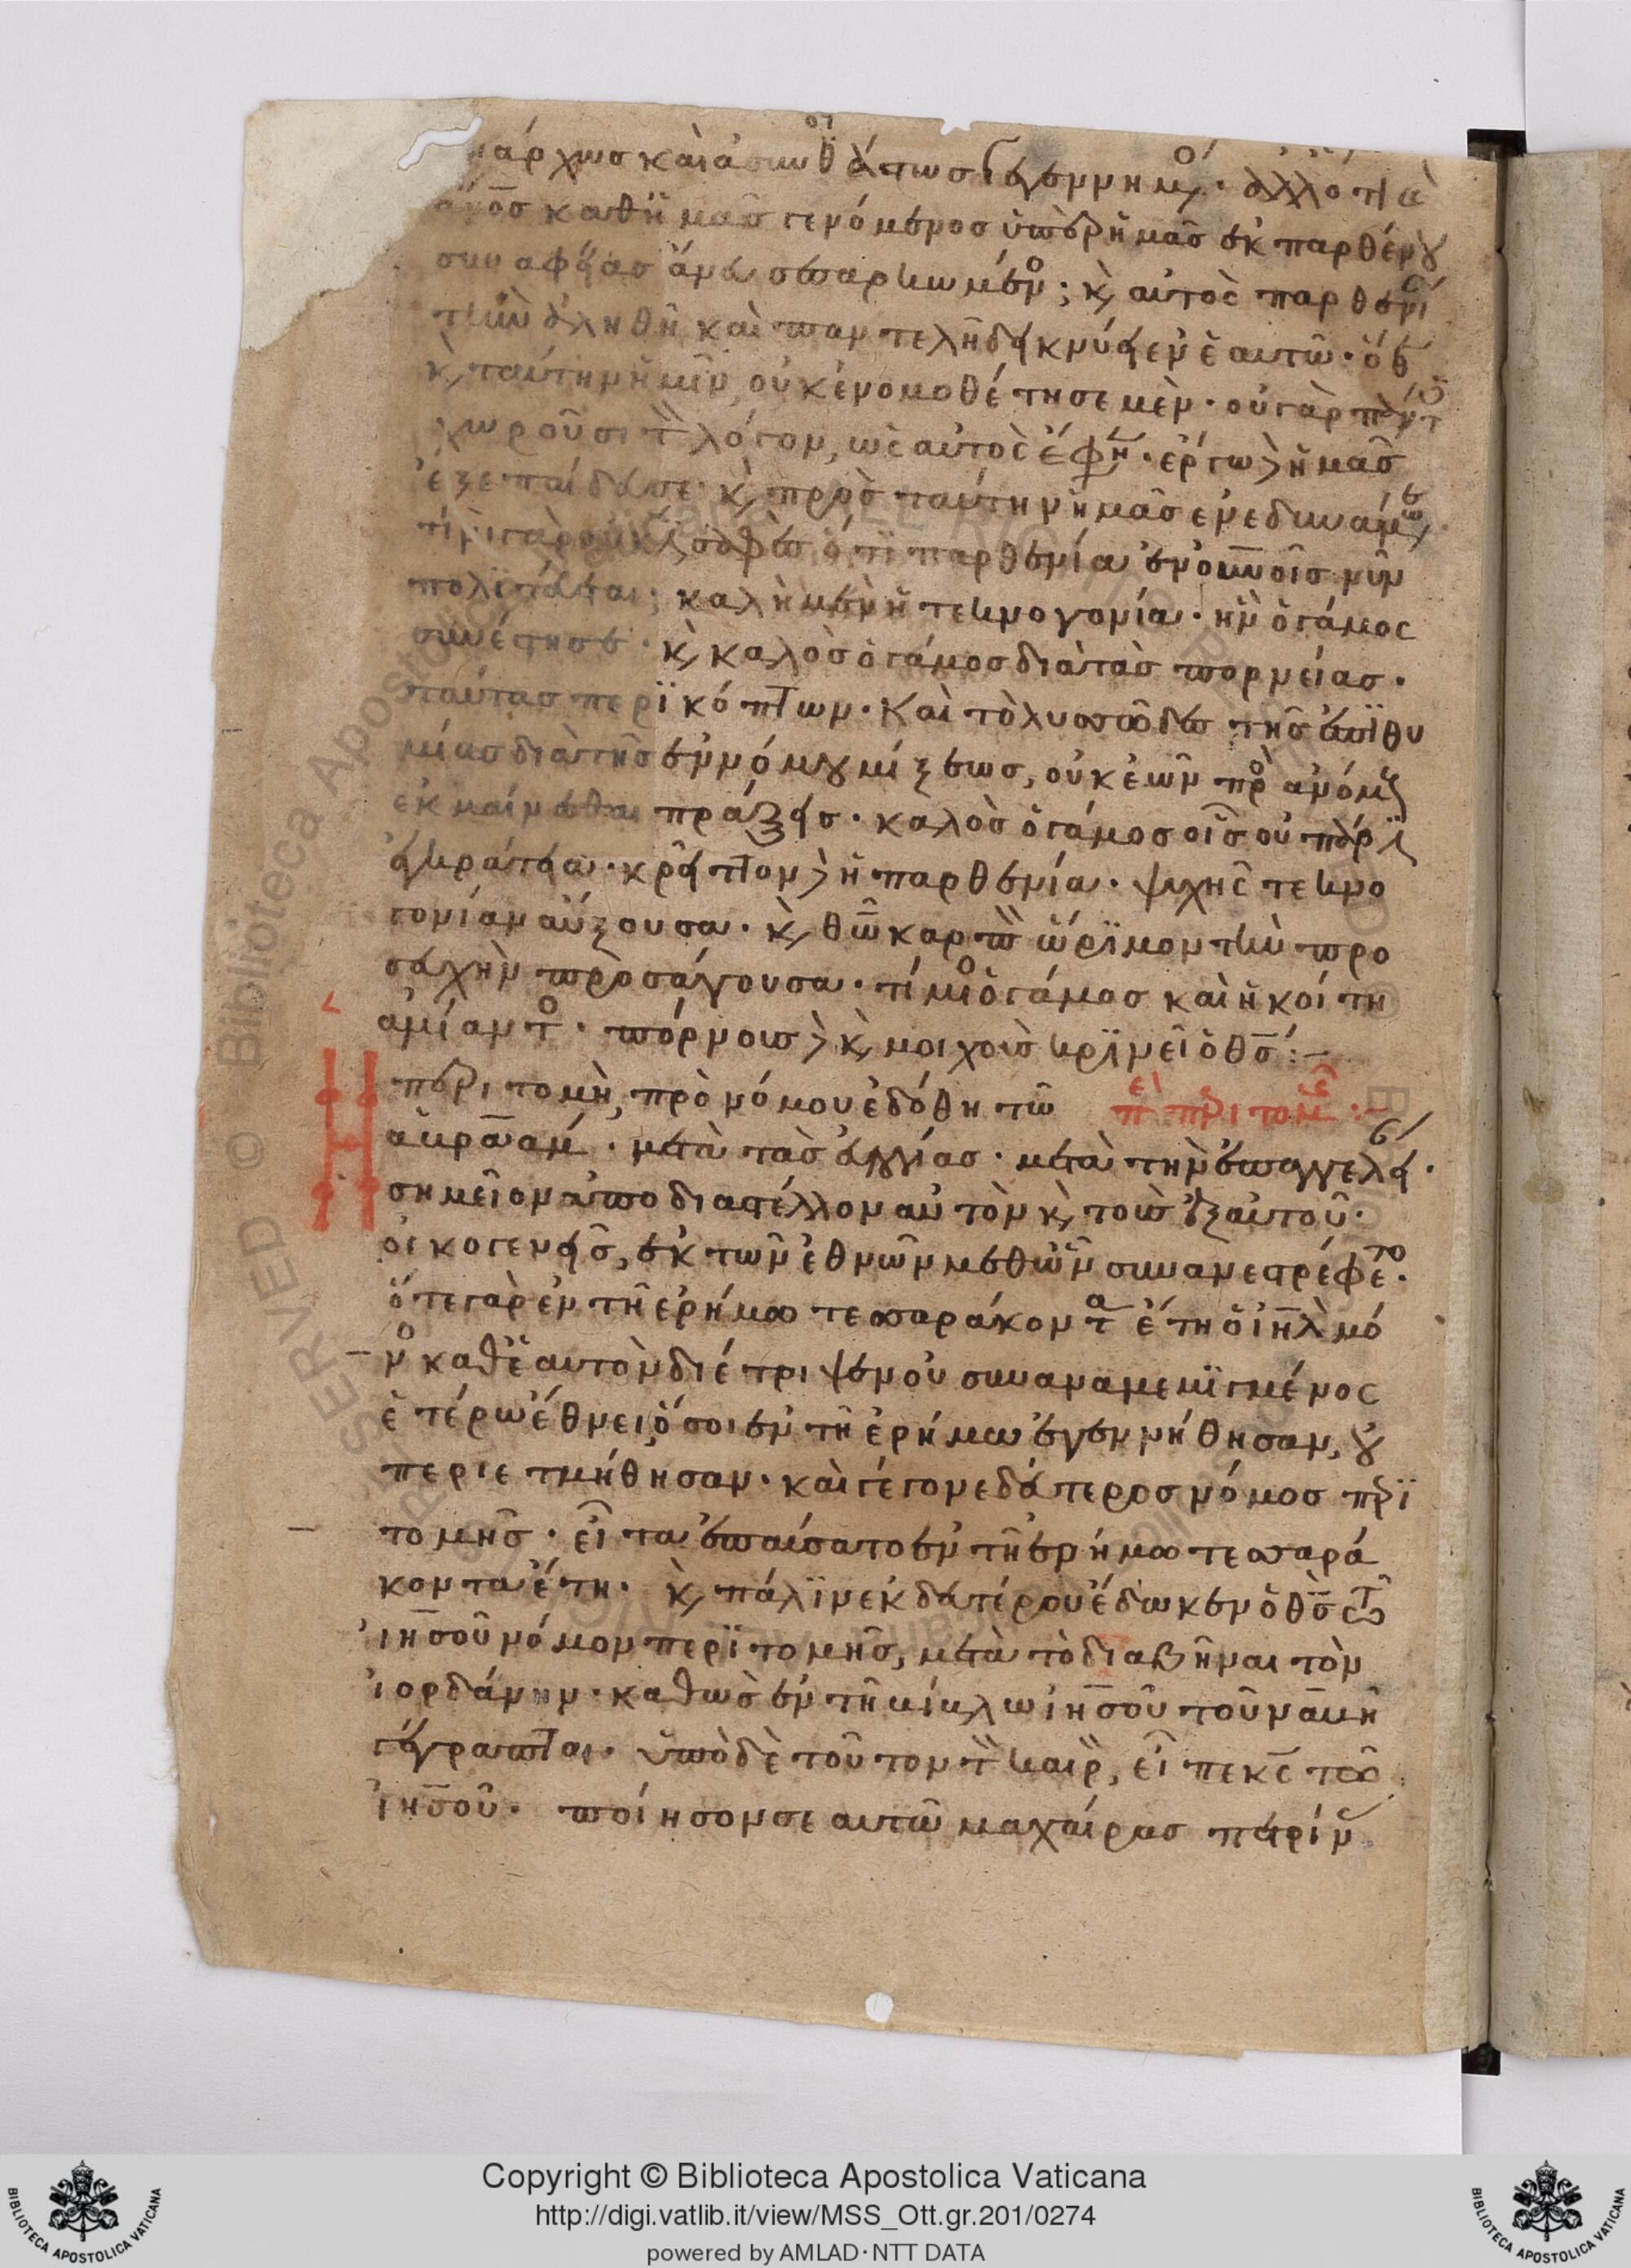 άρχως καὶ ἀσυνθ γεγεννημ · ἀλλ ὅτι
ανος καθ ἡμᾶς γενόμενος ὑπὲρ ἡμᾶς ἐκ παρθένου
συναφείας ἄνευ σεσαρκωμέν; κ αὐτὸς παρθενί
τὴν ἀληθῆ καὶ παντελῆ δείκνύει ἐν ἑαυτῶ· ὅθ
κ ταύτην ἡμῖν οὐκ ἐνομοθέτησε μὲν· οὐ γὰρ πάντ
χωροῦσι τ λόγον, ὡς αὐτὸς ἔφη· ἔργω δ ἡμᾶς
ἐξεπαίδευσε· κ πρὸς ταύτην ἡμᾶς ἐνεδυνάμω
τίνι γὰρ οὐκ σαφὲς ὅτι παρθενία ἐν ἀνοις νῦν
πολιτεύεται; καλὴ μὲν ἡ τεκνογονία· ἣν ὁ γάμος
συνέστησε· κ καλὸς ὁ γάμος διὰ τὰς πορνείας·
ταύτας περικόπτων· καὶ τὸ λυσσῶδες τῆς ἐπιθυ
μίας διὰ τῆς ἐννόμου μίξεως, οὐκ ἐῶν πρ ἀνόμ
ἐκμαίνεσθαι πράξεις· καλὸς ὁ γάμος οἷς οὐ πάρ
ἐγκράτεια· κρεῖττον δ ἡ παρθενία· ψυχῆς τεκνο
γονίαν αὔξουσα· κ θω καρπ ὥριμον τὴν προ
σευχὴν προσάγουσα· τίμι ὁ γάμος καὶ ἡ κοίτη
ἀμίαντ · πόρνους δ κ μοιχοὺς κρινεῖ ὁ θς:–
Η περιτομὴ, πρὸ νόμου ἐδόθη τῶ π περιτομ:–
ἀβραάμ · μετὰ τὰς εὐλογίας · μετὰ τὴν ἐπαγγελ·
σημεῖον ἀποδιαστέλλον αὐτὸν κ τοὺς ἐξ αὐτοῦ·
οἰκογενεῖς, ἐκ τῶν ἐθνῶν μεθ ὧν συνανεστρέφετο·
ὅτε γὰρ ἐν τῆ ἐρήμω τεσσαράκοντ ἔτη ὁ ιηλ μό
ν καθ ἑαυτὸν διέτριψεν οὐ συναναμεμιγμένος
ἑτέρω ἔθνει, ὅσοι ἐν τῆ ἐρήμω ἐγεννήθησαν, οὐ
περιετμήθησαν· καὶ γέγονε δεύτερος νόμος περι
τομῆς · εἶτα ἐπαύσατο ἐν τῆ ἐρήμω τεσσαρά
κοντα ἔτη· κ πάλιν ἐκ δευτέρου ἔδωκεν ὁ θς τῶ
ιησοῦ νόμον περιτομῆς, μετὰ τὸ διαβῆναι τὸν
ἰορδάνην· καθὼς ἐν τῆ βίβλω ιησοῦ τοῦ ναυῆ
γέγραπται· ὑπὸ δὲ τοῦτον τ καιρ, εἶπε κς τῶ
ιησοῦ· ποίησον σεαυτῶ μαχαίρας πετρίν
Copyright © Biblioteca Apostolica Vaticana
http://digi.vatlib.it/view/MSS_Ott.gr.201/0274
powered by AMLAD·NTT DATA
BIBLIOTECA APOSTOLICA VATICANA
BIBLIOTECA APOSTOLICA VATICANA